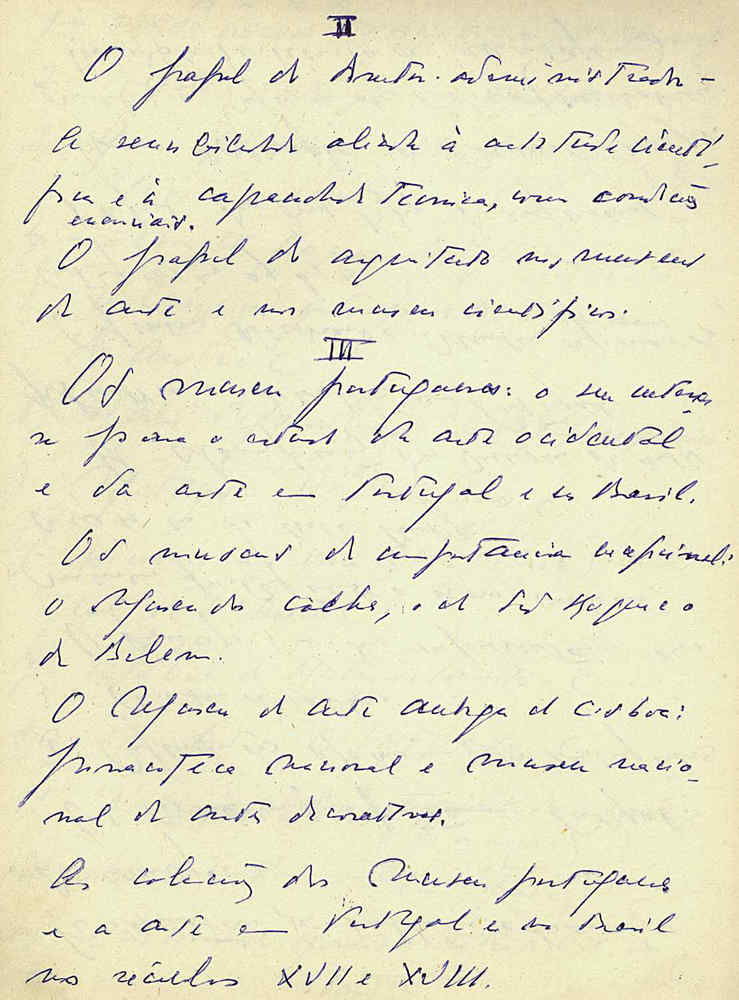 II
O papel do director-administrador —
A sensibilidade aliada à actitude cientí-
fica e à capacidade técnica, como condições
essenciais.
O papel do arquitecto nos museus
de arte e nos museus científicos.
III
Os museus portugueses: o seu interes-
se para o estudo da arte ocidental
e da arte em Portugal e no Brasil.
Os museus de importância excepcional:
o Museu dos coches, o de São Roque e o
de Belem.
O Museu de arte antiga de Lisboa:
pinacoteca nacional e museu nacio-
nal de artes decorativas.
As colecções dos Museus portugueses
e a arte em Portugal e no Brasil
nos séculos XVII e XVIII.